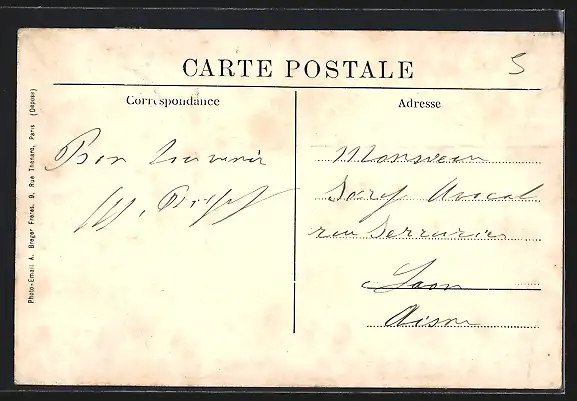 CARTE POSTALE
5
Correspondance
Adresse
Bon Souvenir
Monsieur
rue Serrurier
Laon
Aisne
Photo-Email A. Breger Frères, 9, Rue Thénard, Paris (Déposé)